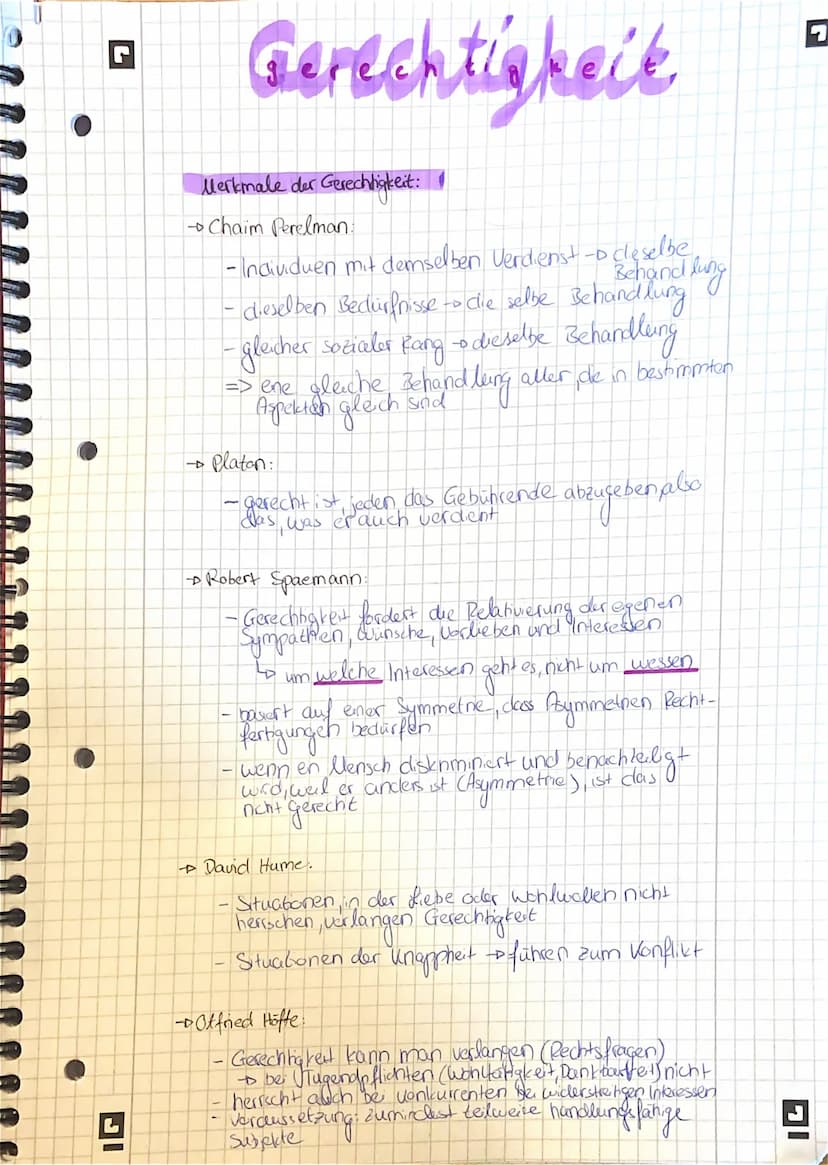 Gerechtigkeit
gerechtigkeit.
Merkmale der Gerechtigkeit:
→ Chaim Perelman:
- Individuen mit demselben Verdienst → dieselbe
Behandlung
- dieselben Bedürfnisse → die selbe Behandlung
- gleicher sozialer Rang → dieselbe Behandlung
=> eine gleiche Behandlung aller, die in bestimmten
Aspekten gleich sind
→ Platon:
- gerecht ist, jeden das Gebührende abzugeben, also
das, was er auch verdient
→ Robert Spaemann:
- Gerechtigkeit fordert die Relativierung der eigenen
Sympathien, Wünsche, Vorlieben und Interessen
↳ um welche Interessen geht es, nicht um wessen
- basiert auf einer Symmetrie, dass Asymmetrien Recht-
fertigungen bedürfen
- wenn ein Mensch diskriminiert und benachteiligt
wird, weil er anders ist (Asymmetrie), ist das
nicht gerecht
→ David Hume:
- Situationen, in der Liebe oder Wohlwollen nicht
herrschen, verlangen Gerechtigkeit
- Situationen der Knappheit → führen zum Konflikt
→ Otfried Höffe:
- Gerechtigkeit kann man verlangen (Rechtsfragen)
→ bei Tugendpflichten (Wohltätigkeit, Dankbarkeit) nicht
- herrscht auch bei Konkurrenten bei widerstreitigen Interessen
- Voraussetzung: zumindest teilweise handlungsfähige
Subjekte